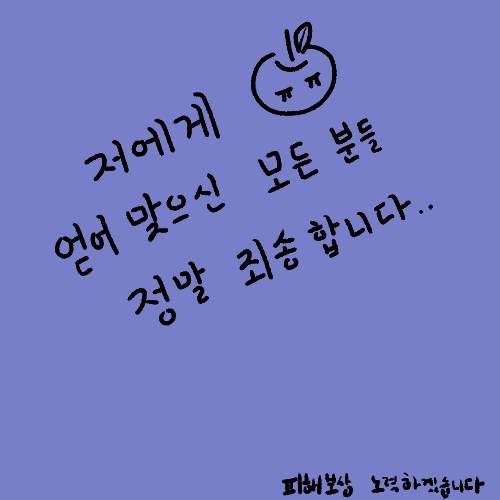 저에게
얻어 맞으신 모든 분들
정말 죄송합니다..
피해보상 노력하겠습니다